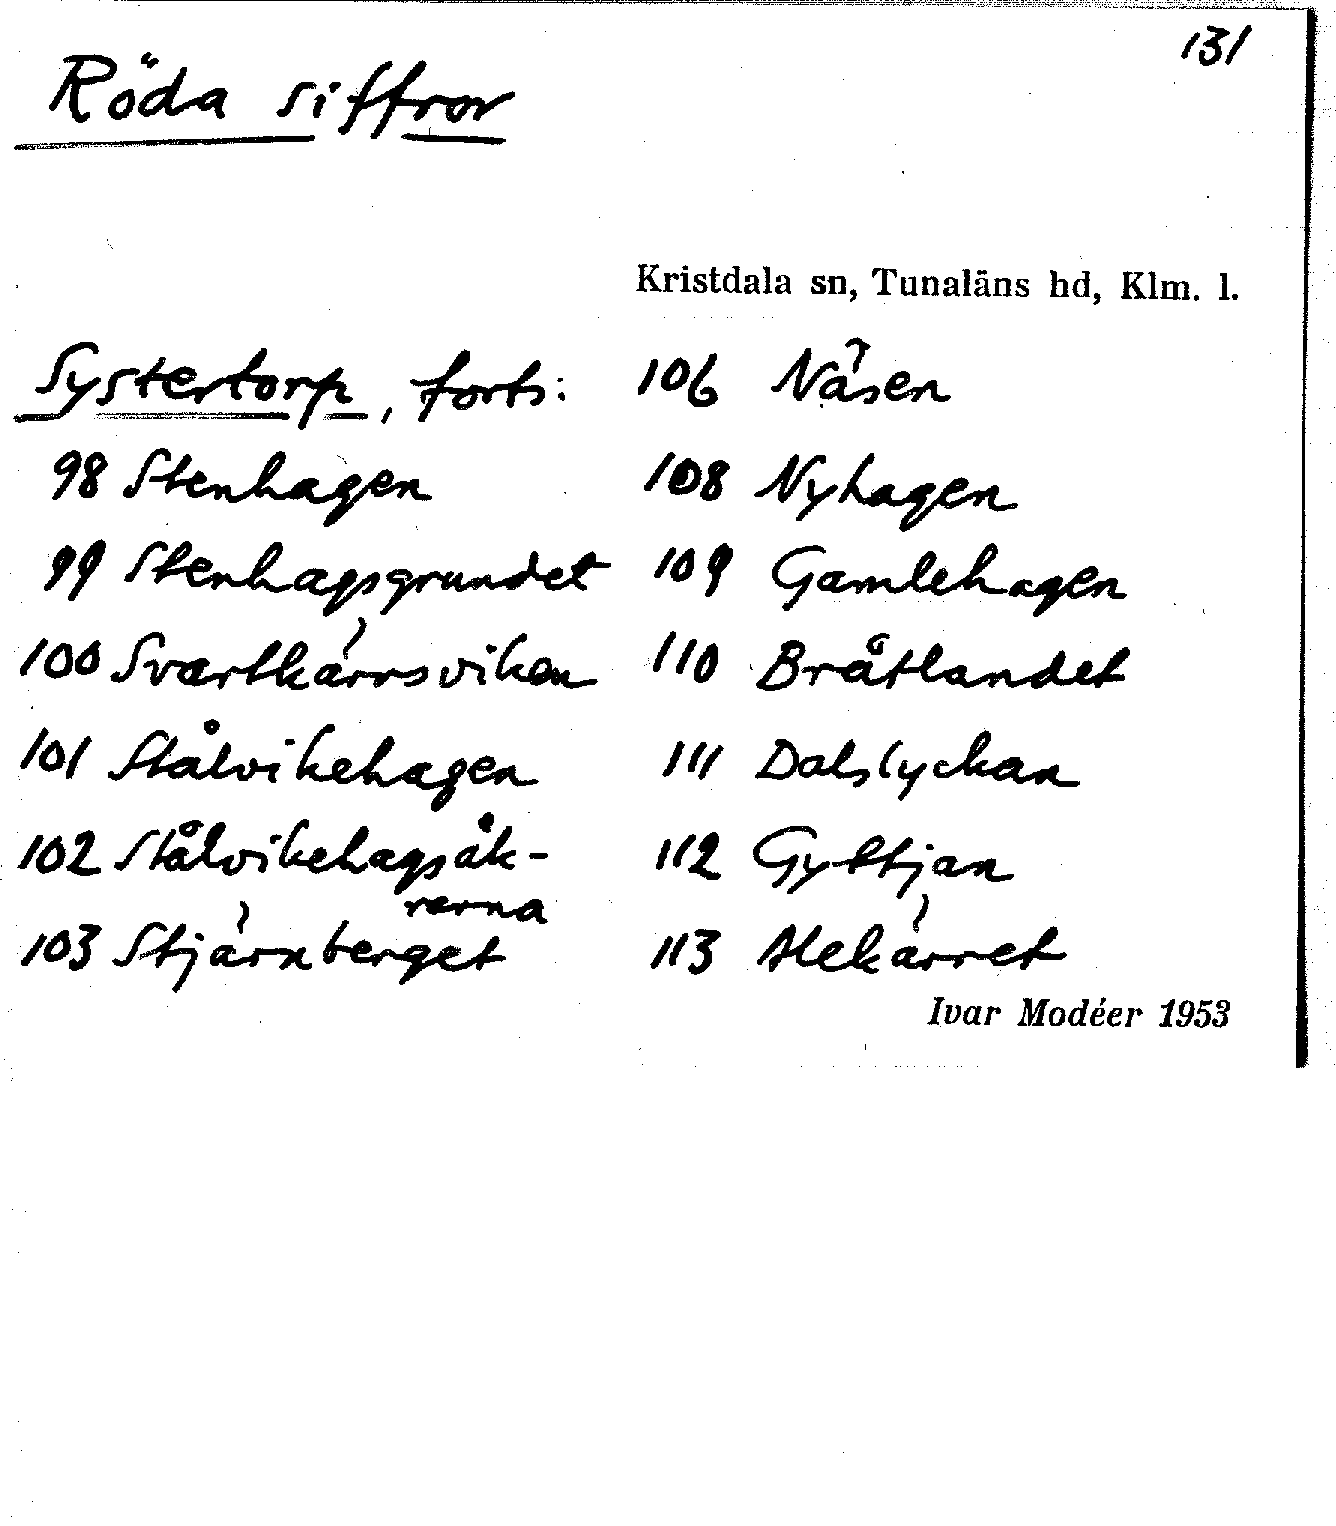 131
Röda siffror
Kristdala sn, Tunaläns hd, Klm. l.
Systertorp, forts:
98 Stenhagen
99 Stenhagsgrundet
100 Svartkärrsviken
101 Stålvikehagen
102 Stålvikehagsåk-
rarna
103 Stjärnberget
106 Näsen
108 Nyhagen
109 Gamlehagen
110 Bråtlandet
111 Dalslyckan
112 Gyltjan
113 Alekärret
Ivar Modéer 1953